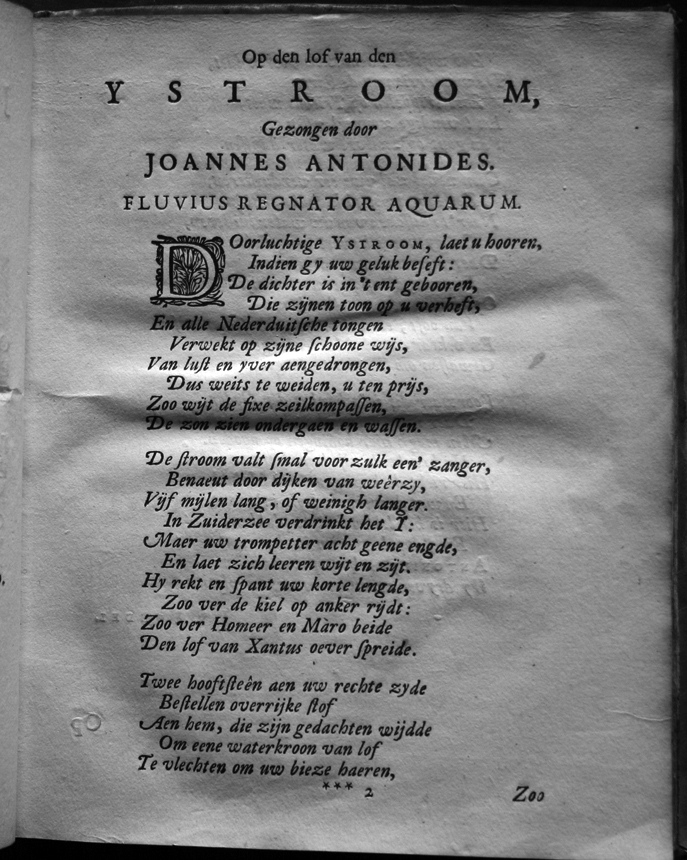 Op den lof van den
YSTROOM,
Gezongen door
JOANNES ANTONIDES.
FLUVIUS REGNATOR AQUARUM.
DOorluchtige YSTROOM, laet u hooren,
Indien gy uw geluk beſeft:
De dichter is in 't ent gebooren,
Die zijnen toon op u verheft,
En alle Nederduitſche tongen
Verwekt op zijne ſchoone wijs,
Van luſt en yver aengedrongen,
Dus weits te weiden, u ten prijs,
Zoo wijt de fixe zeilkompaſſen,
De zon zien ondergaen en waſſen.
De ſtroom valt ſmal voor zulk een' zanger,
Benaeut door dijken van weêrzy,
Vijf mijlen lang, of weinigh langer.
In Zuiderzee verdrinkt het Y:
Maer uw trompetter acht geene engde,
En laet zich leeren wijt en zijt.
Hy rekt en ſpant uw korte lengde,
Zoo ver de kiel op anker rijdt:
Zoo ver Homeer en Màro beide
Den lof van Xantus oever ſpreide.
Twee hooftſteên aen uw rechte zyde
Beſtellen overrijke ſtof
Aen hem, die zijn gedachten wijdde
Om eene waterkroon van lof
Te vlechten om uw bieze haeren,
*** 2
Zoo